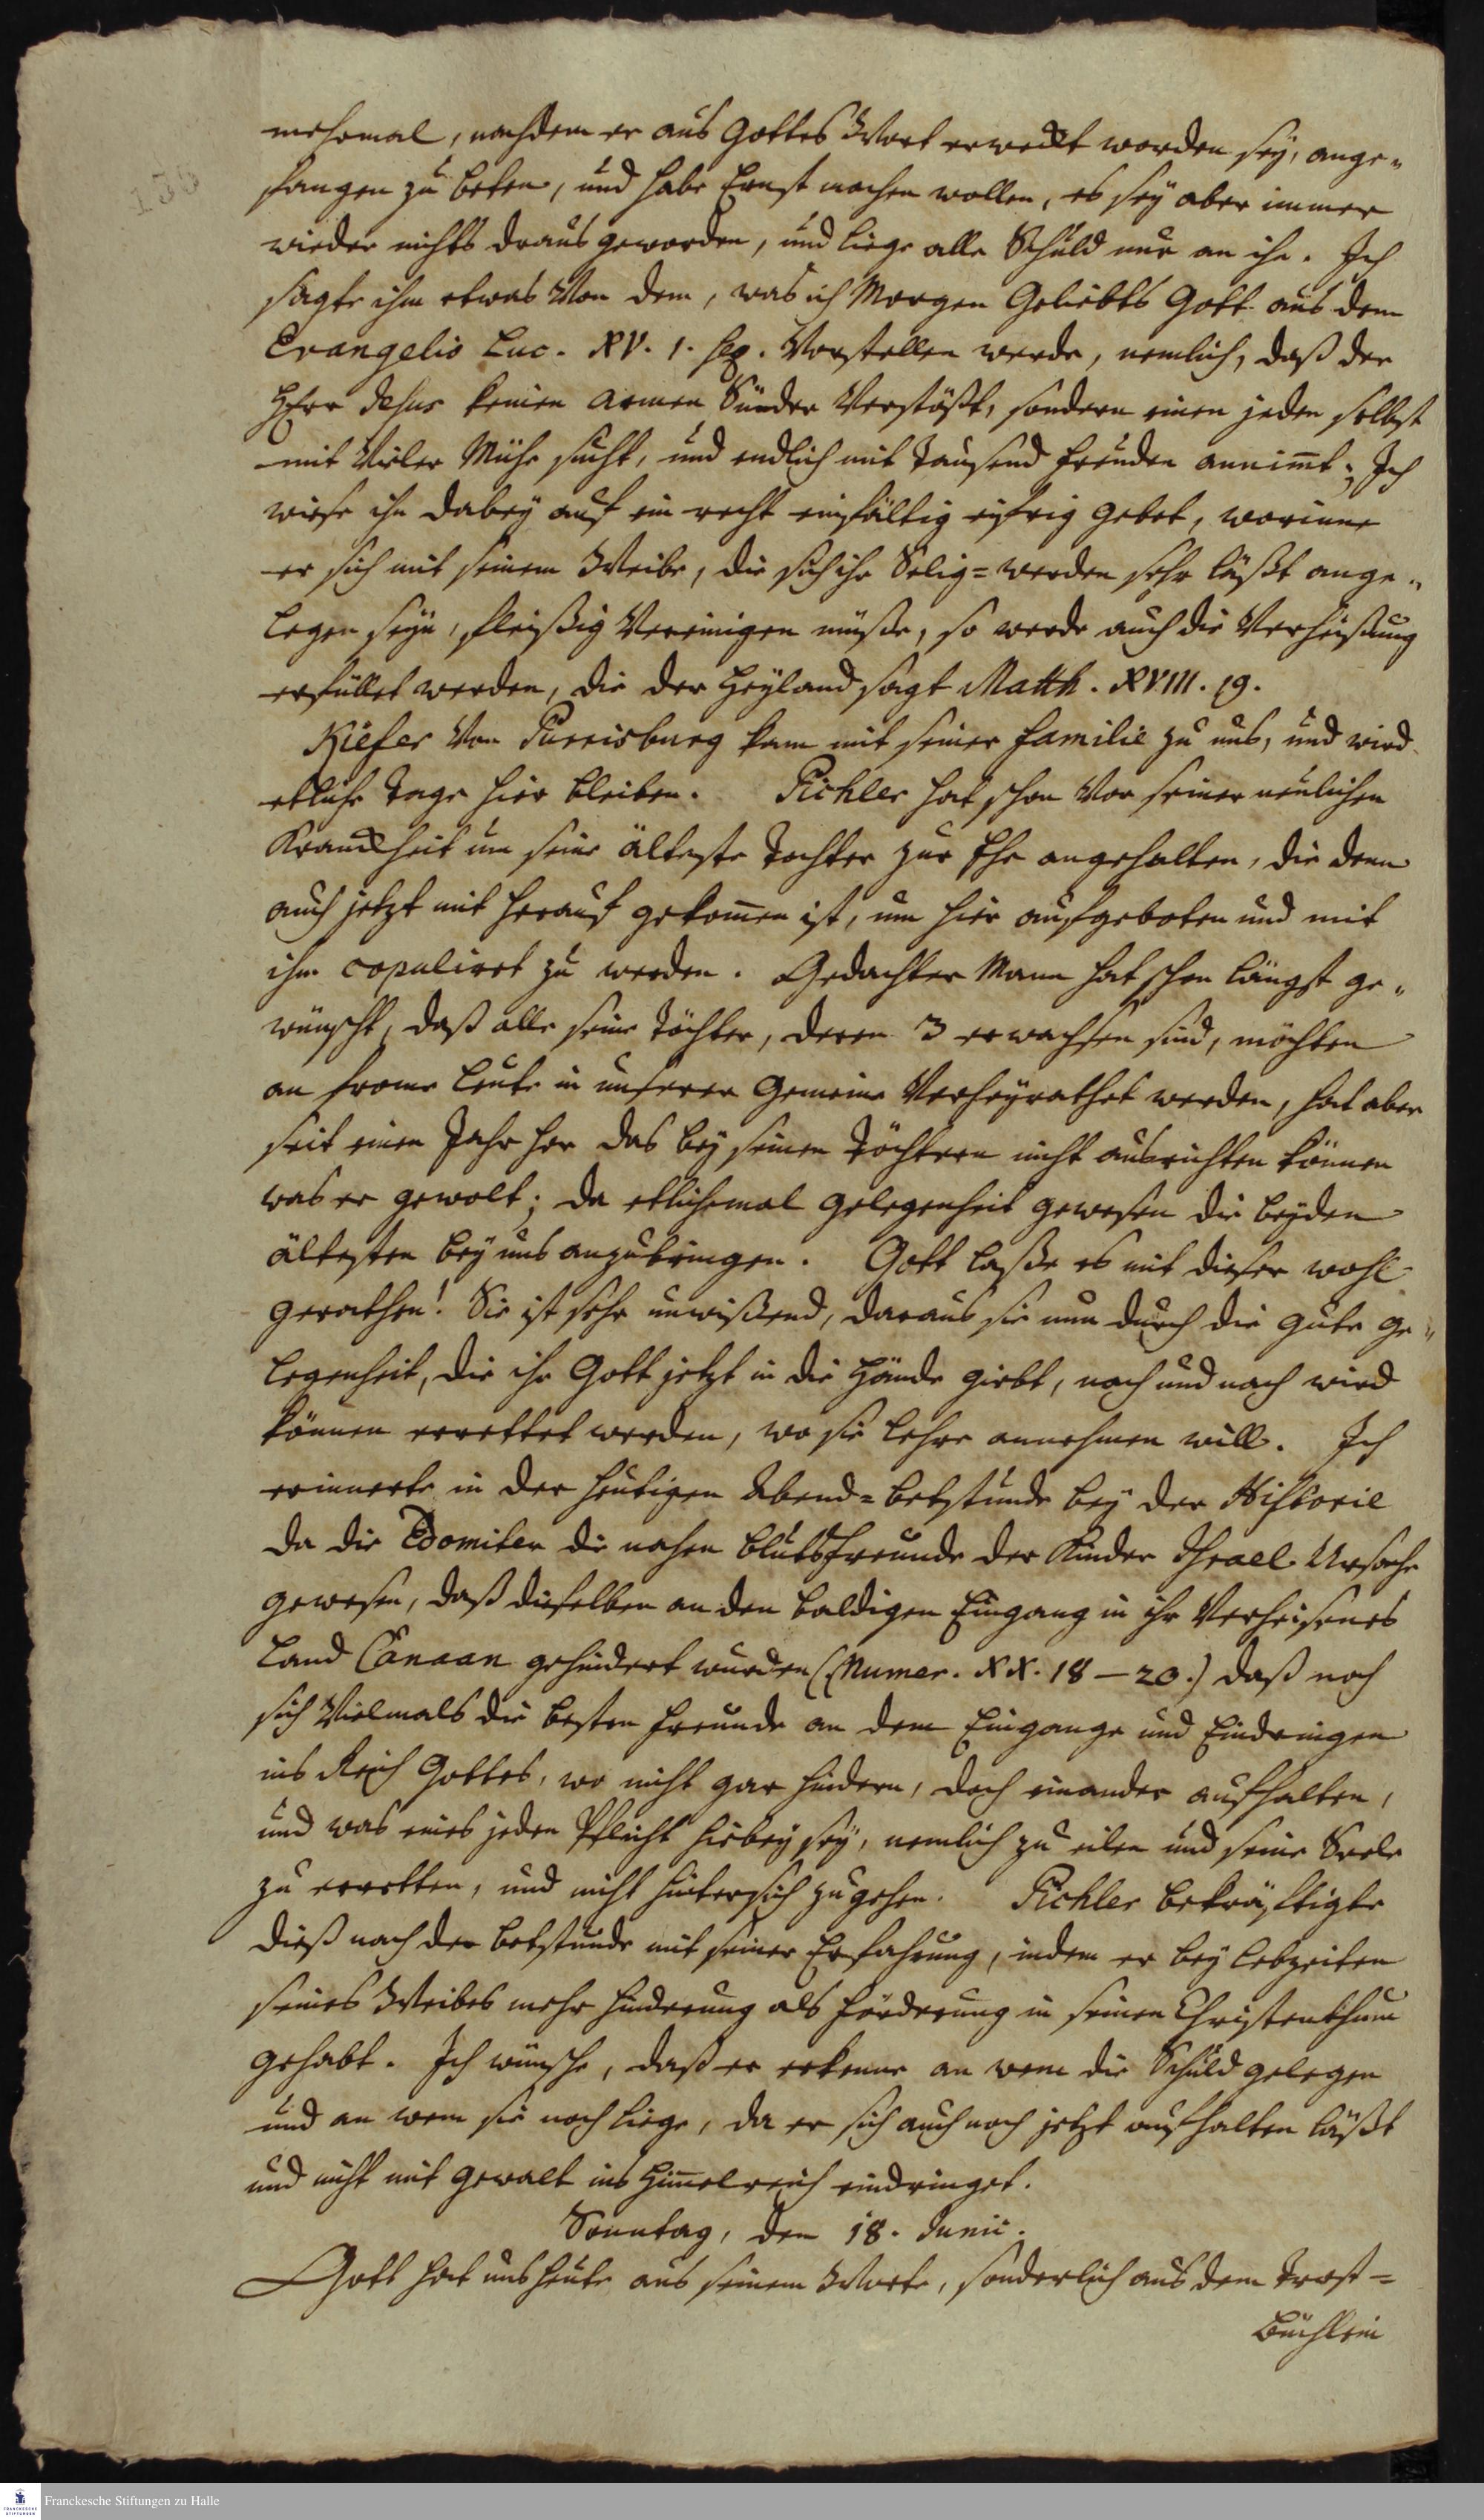 130
mehrmal, nachdem er aus Gottes Wort erweckt worden sey, ange„
fangen zu beten, und habe Ernst machen wollen, es sey aber immer
wieder nichts draus geworden, und liege alle Schuld nur an ihn. Ich
sagte ihm etwas von dem, was ich Morgen Geliebts Gott aus dem
Evangelio Luc. XV. 1. seq. vorstellen werde, nemlich, daß der
HErr Jesus keinen armen Sünder verstößt, sondern einen jeden selbst
mit vieler Mühe sucht, und endlich mit Tausend Freuden annim̅t; Ich
wiese ihn dabey auf ein recht einfältig eyfrig Gebet, worinne
er sich mit seinem Weibe, die sich ihr Selig=werden sehr läßt ange„
legen seyn, fleißig vereinigen müße, so werde auch die Verheißung
erfüllet werden, die der Heyland sagt Matth. XVIII. 19.
Kiefer von Purrisburg kam mit seiner Familie zu uns, und wird
etliche Tage hier bleiben. Pichler hat schon vor seiner neulichen
Kranckheit um seine älteste Tochter zur Ehe angehalten, die denn
auch jetzt mit herauf gekom̅en ist, um hier aufgeboten und mit
ihm copuliret zu werden. Gedachter Mann hat schon längst ge„
wünscht, daß alle seine Töchter, deren 3 erwachsen sind, möchten
an from̅e Leute in unserer Gemeine verheyrathet werden, hat aber
seit einen Jahr her das bey seinen Töchtern nicht ausrichten können
was er gewolt; da etlichemal Gelegenheit gewesen die beyden
ältesten bey uns anzubringen. Gott laße es mit dieser wohl
gerathen! Sie ist sehr unwißend, daraus sie nun durch die gute Ge„
legenheit, die ihr Gott jetzt in die Hände giebt, nach und nach wird
können errettet werden, wo sie Lehre annehmen will. Ich
erinnerte in der heutigen Abend=Betstunde bey der Historie
da die Edomiter die nahen Blutsfreunde der Kinder Israel Ursache
gewesen, daß dieselben an den baldigen Eingang in ihr verheisenes
Land Canaan gehindert wurden (Numer. XX. 18 – 20.) daß noch
sich vielmals die besten Freunde an dem Eingange und Eindringen
ins Reich Gottes, wo nicht gar hindern, doch einander aufhalten,
und was eines jeden Pflicht hiebey sey, nemlich zu eilen und seine Seele
zu erretten, und nicht hintersich zu gehen. Pichler bekräftigte
dieß nach der Betstunde mit seiner Erfahrung, indem er bey Lebzeiten
seines Weibes mehr Hinderung als Förderung in seinen Christenthum
gehabt. Ich wünsche, daß er erkenne an wem die Schuld gelegen
und an wem sie noch liege, da er sich auch noch jetzt aufhalten läßt
und nicht mit Gewalt ins Him̅elreich eindringet.
Sonntag, den 18. Junii.
Gott hat uns heute aus seinem Worte, sonderlich aus dem Trost=
büchlein
Franckesche Stiftungen zu Halle